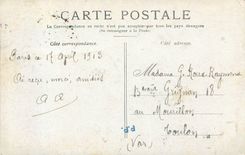 CARTE POSTALE
La Correspondance au recto n'est pas acceptée par tous les pays étrangers
(Se renseigner à la Poste)
Côté correspondance.
Côté adresse.
Paris le 17 Avril 1913
Ai reçu, merci, amitiés
Madame G. Roux
Grignan 18
au Mourillon
Toulon
(Var)